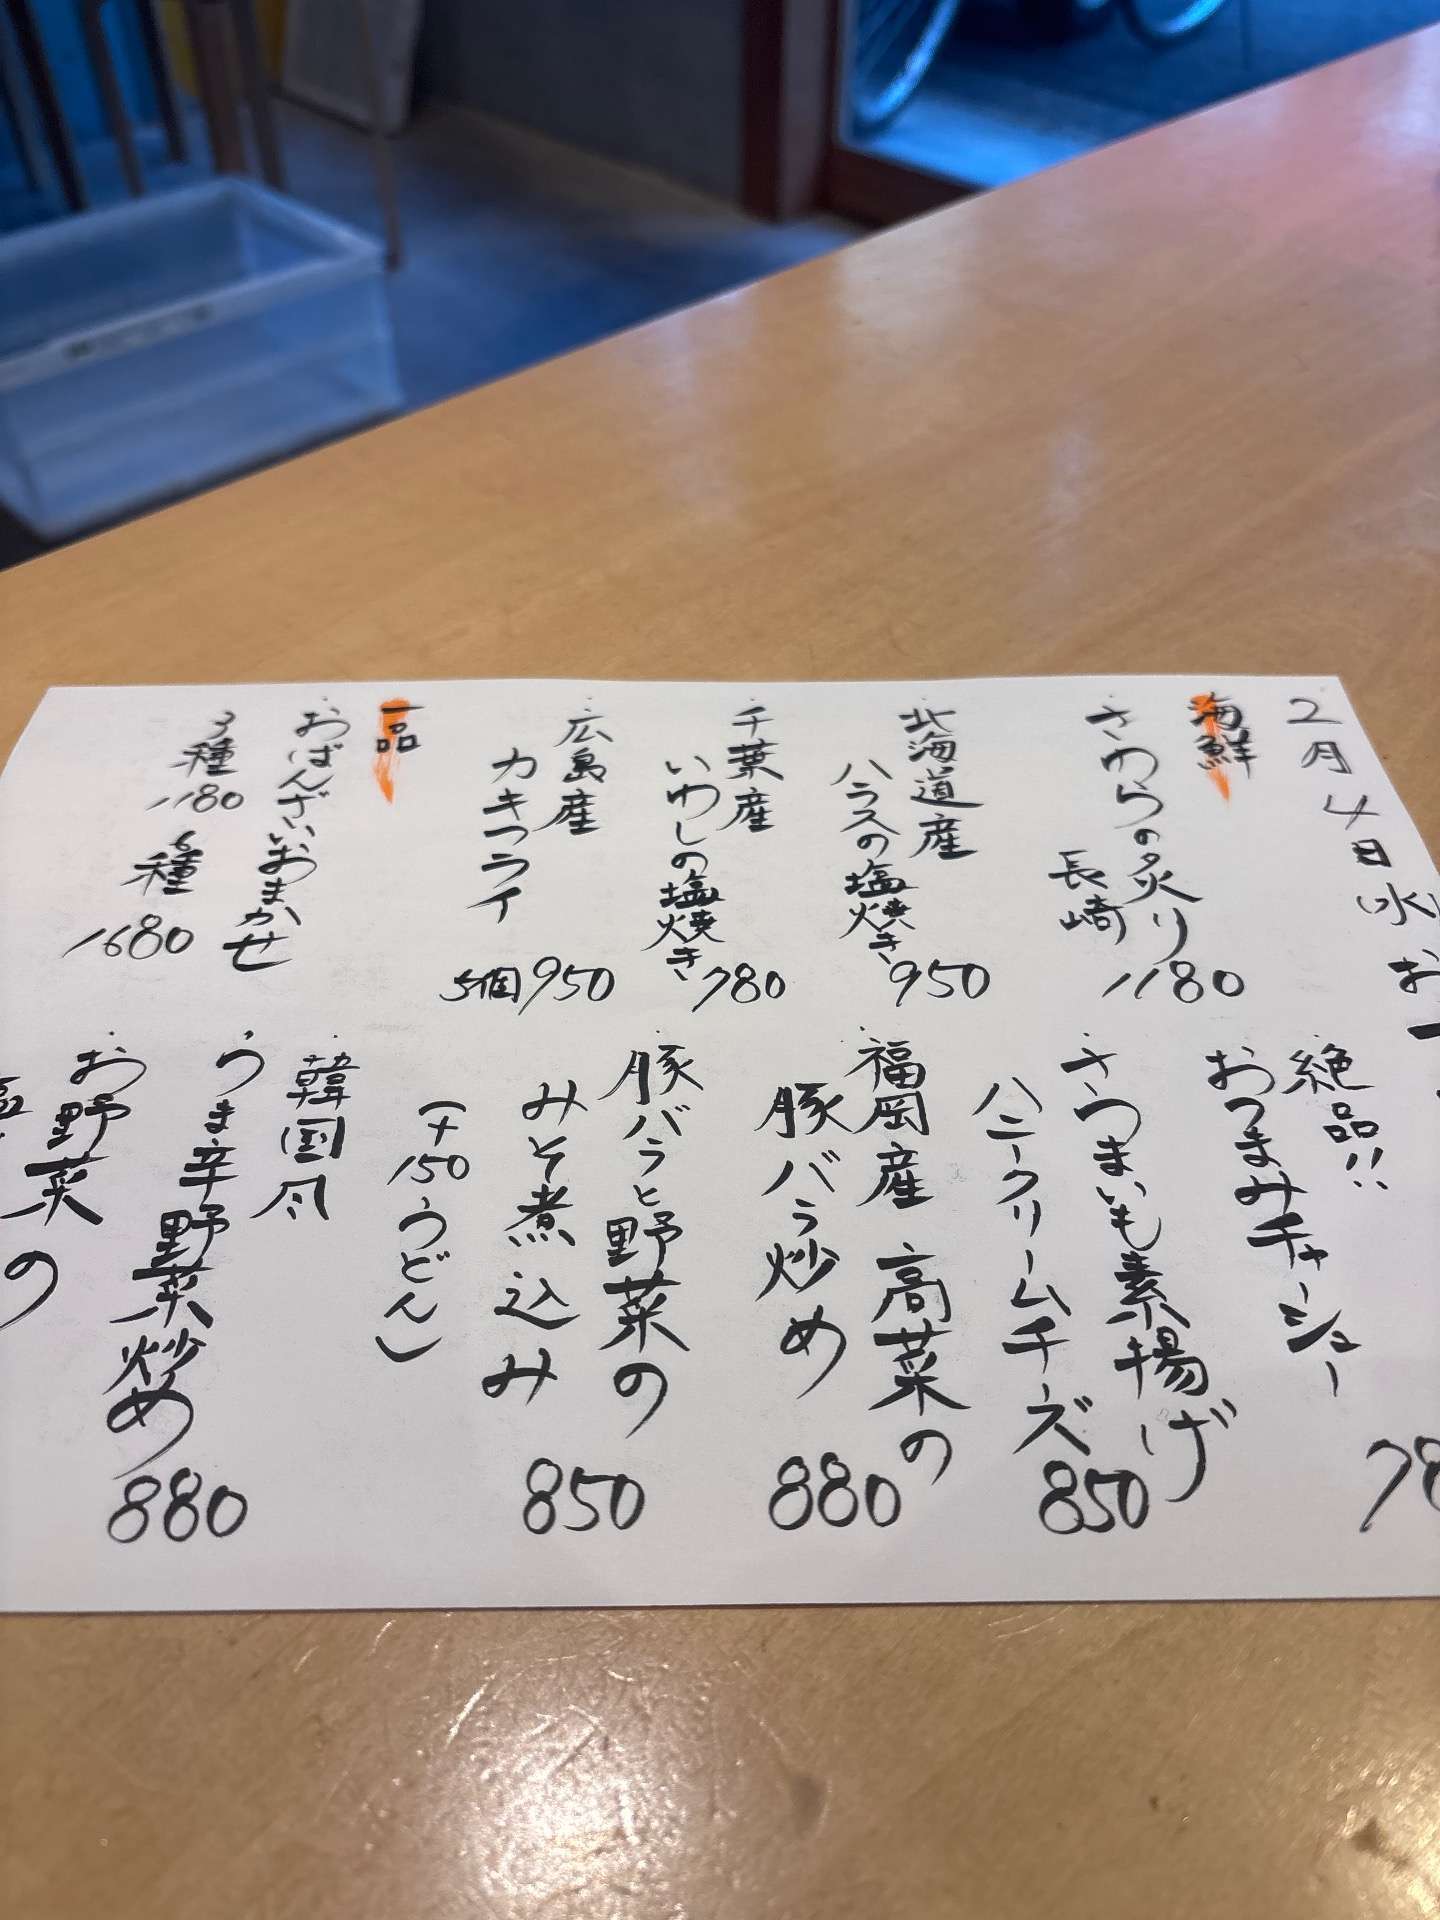 2月4日(水)お
海鮮
さわらの炙り
長崎
1180
北海道産
ハラスの塩焼き
950
千葉産
いわしの塩焼き
780
広島産
カキフライ
5個950
一品
おばんざいおまかせ
3種
1180
6種
1680
絶品!!
おつまみチャーシュー
78
さつまいも素揚げ
ハニークリームチーズ
850
福岡産 高菜の
豚バラ炒め
880
豚バラと野菜の
みそ煮込み
(+150うどん)
850
韓国風
うま辛野菜炒め
880
お野菜の
塩